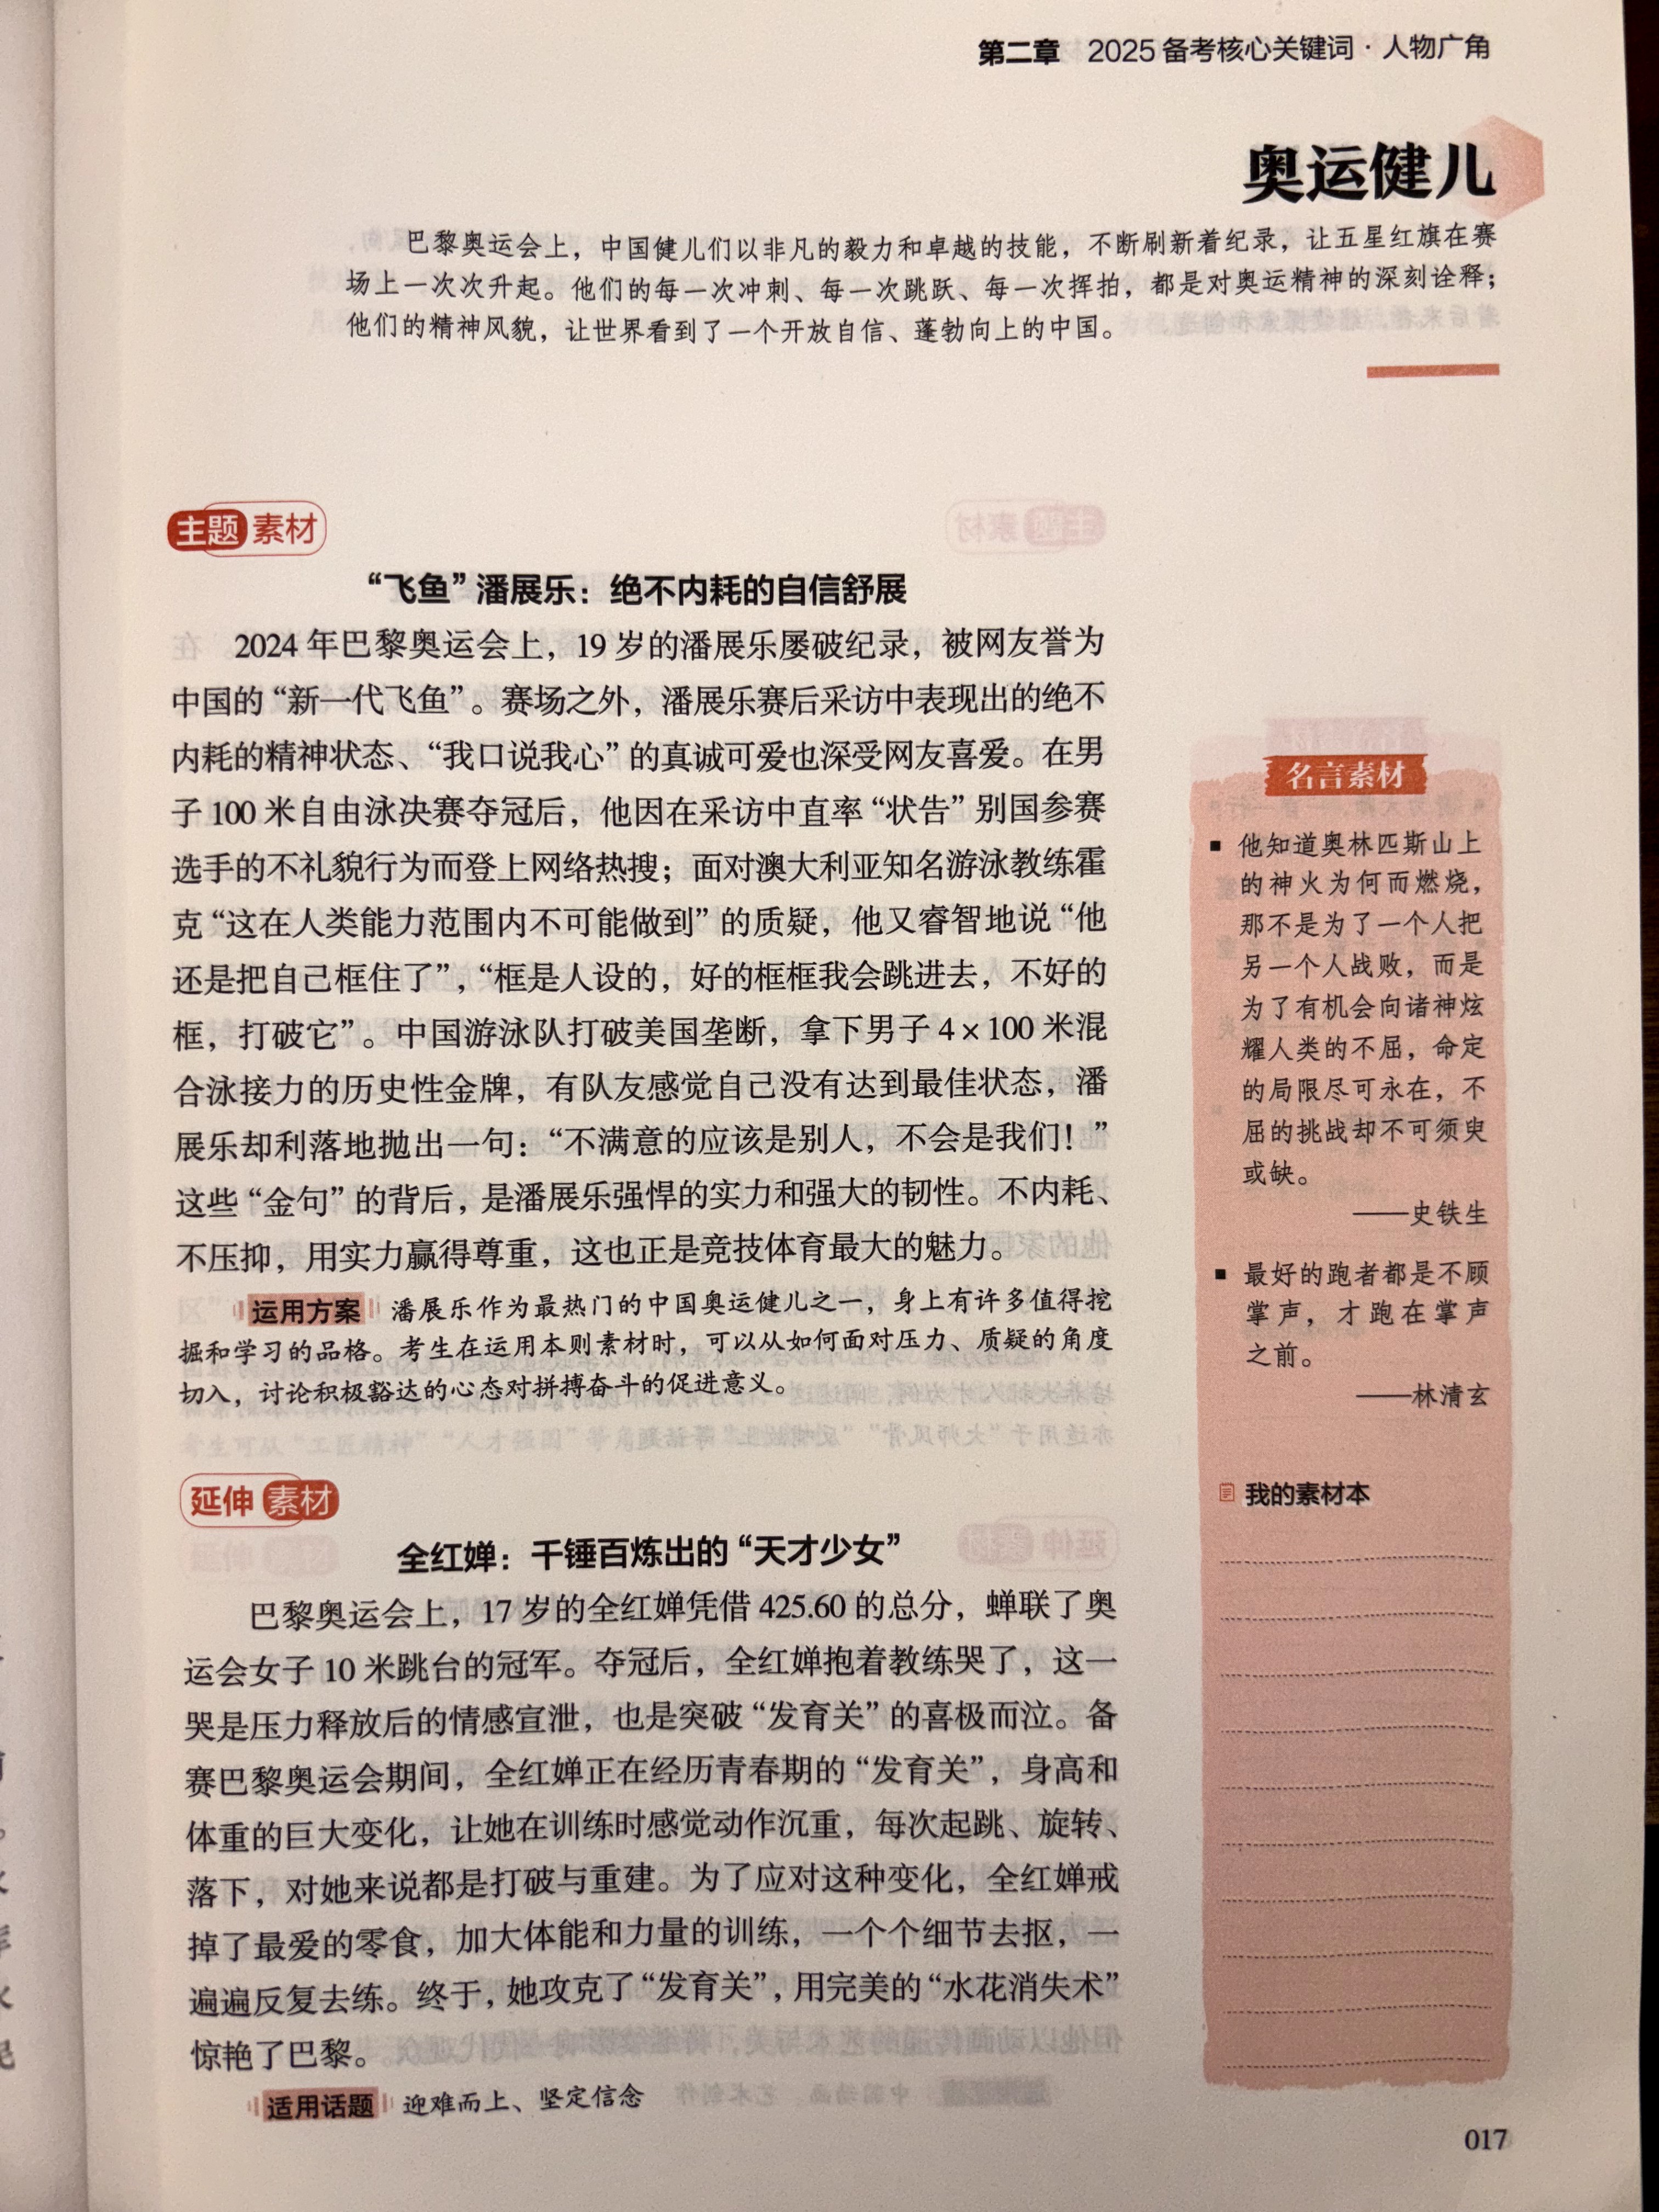 第二章 2025备考核心关键词·人物广角
奥运健儿
巴黎奥运会上，中国健儿们以非凡的毅力和卓越的技能，不断刷新着纪录，让五星红旗在赛
场上一次次升起。他们的每一次冲刺、每一次跳跃、每一次挥拍，都是对奥运精神的深刻诠释；
他们的精神风貌，让世界看到了一个开放自信、蓬勃向上的中国。
主题素材
“飞鱼”潘展乐：绝不内耗的自信舒展
2024年巴黎奥运会上，19岁的潘展乐屡破纪录，被网友誉为
中国的“新一代飞鱼”。赛场之外，潘展乐赛后采访中表现出的绝不
内耗的精神状态、“我口说我心”的真诚可爱也深受网友喜爱。在男
子100米自由泳决赛夺冠后，他因在采访中直率“状告”别国参赛
选手的不礼貌行为而登上网络热搜；面对澳大利亚知名游泳教练霍
克“这在人类能力范围内不可能做到”的质疑，他又睿智地说“他
还是把自己框住了”，“框是人设的，好的框框我会跳进去，不好的
框，打破它”。中国游泳队打破美国垄断，拿下男子4×100米混
合泳接力的历史性金牌，有队友感觉自己没有达到最佳状态，潘
展乐却利落地抛出一句：“不满意的应该是别人，不会是我们！”
这些“金句”的背后，是潘展乐强悍的实力和强大的韧性。不内耗、
不压抑，用实力赢得尊重，这也正是竞技体育最大的魅力。
运用方案 潘展乐作为最热门的中国奥运健儿之一，身上有许多值得挖
掘和学习的品格。考生在运用本则素材时，可以从如何面对压力、质疑的角度
切入，讨论积极豁达的心态对拼搏奋斗的促进意义。
延伸素材
全红婵：千锤百炼出的“天才少女”
巴黎奥运会上，17岁的全红婵凭借425.60的总分，蝉联了奥
运会女子10米跳台的冠军。夺冠后，全红婵抱着教练哭了，这一
哭是压力释放后的情感宣泄，也是突破“发育关”的喜极而泣。备
赛巴黎奥运会期间，全红婵正在经历青春期的“发育关”，身高和
体重的巨大变化，让她在训练时感觉动作沉重，每次起跳、旋转、
落下，对她来说都是打破与重建。为了应对这种变化，全红婵戒
掉了最爱的零食，加大体能和力量的训练，一个个细节去抠，一
遍遍反复去练。终于，她攻克了“发育关”，用完美的“水花消失术”
惊艳了巴黎。
适用话题 迎难而上、坚定信念
名言素材
■ 他知道奥林匹斯山上
的神火为何而燃烧，
那不是为了一个人把
另一个人战败，而是
为了有机会向诸神炫
耀人类的不屈，命定
的局限尽可永在，不
屈的挑战却不可须臾
或缺。
——史铁生
■ 最好的跑者都是不顾
掌声，才跑在掌声
之前。
——林清玄
我的素材本
017